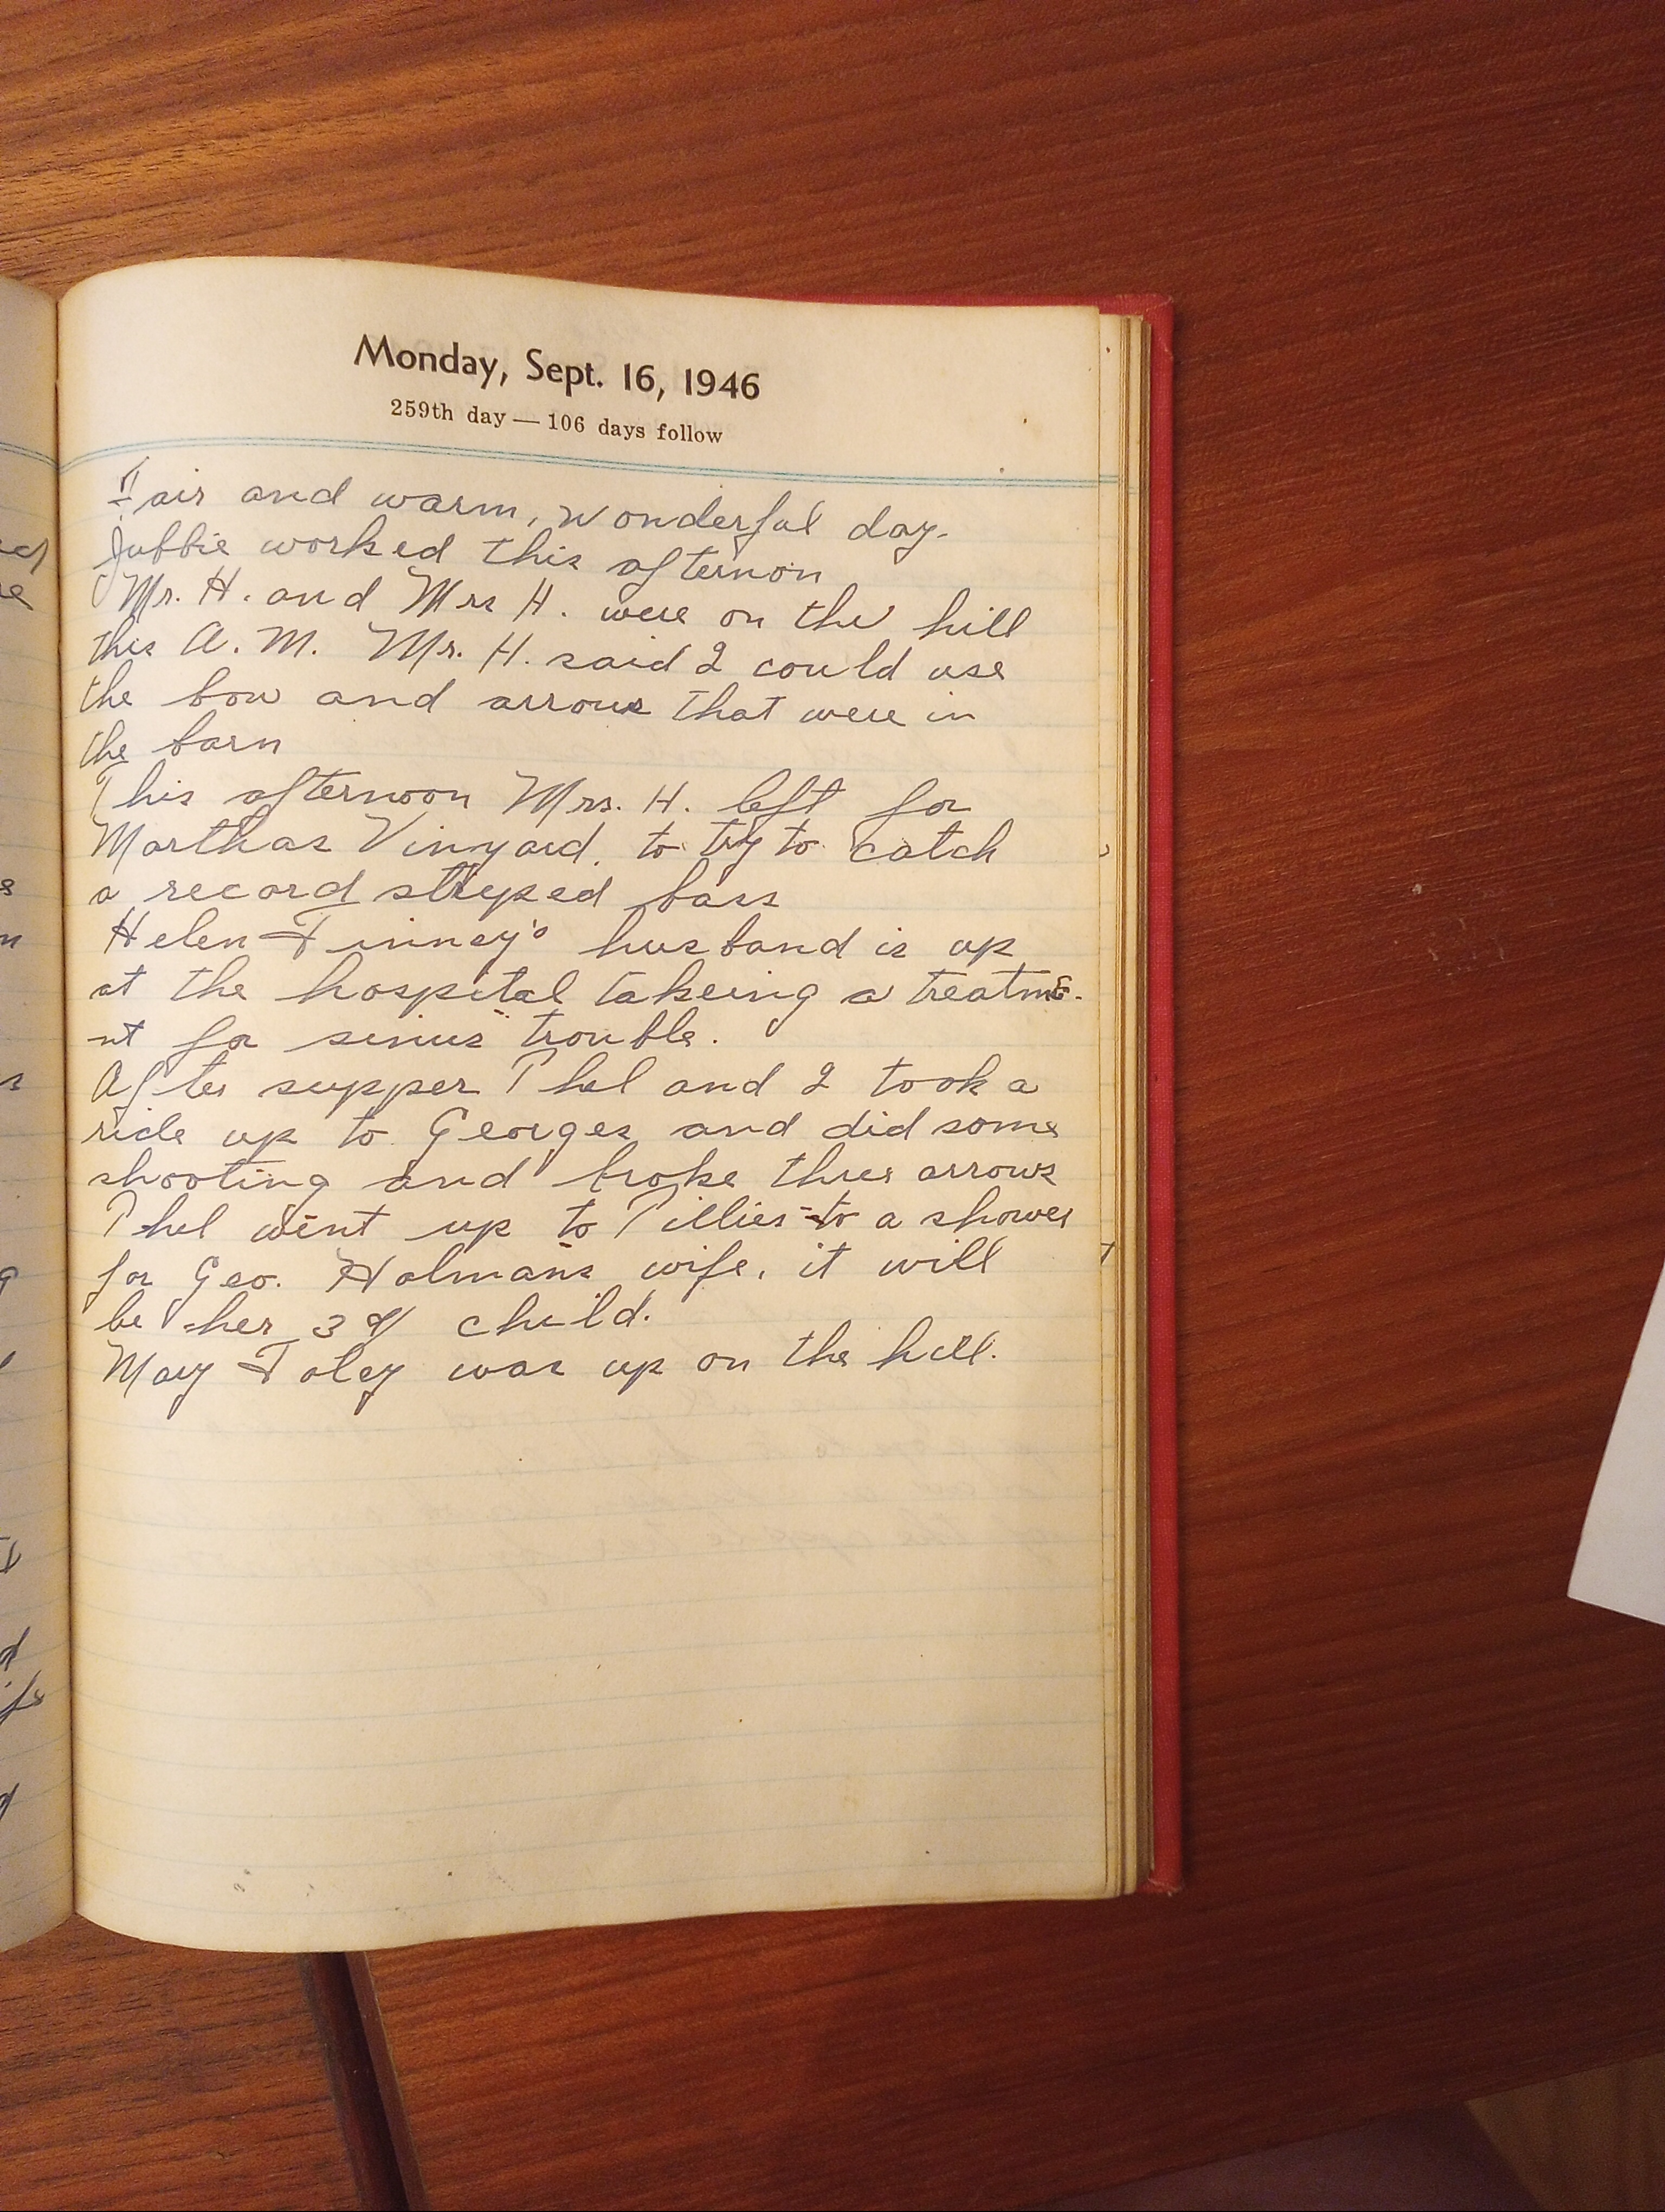 Monday, Sept. 16, 1946
259th day — 106 days follow
Fair and warm, wonderful day.
Jubbie worked this afternon
Mr. H. and Mrs H. were on the hill
this A. M. Mr. H. said I could use
the bow and arrows that were in
the barn
This afternoon Mrs. H. left for
Marthas Vinyard, to try to catch
a record striped bass
Helen Finney's husband is up
at the hospital takeing a treatme-
nt for sinus trouble.
After supper Phel and I took a
ride up to Georges and did some
shooting and broke three arrows
Phel went up to Tillies to a shower
for Geo. Holmans wife, it will
be her 3d child.
May Foley was up on the hill.